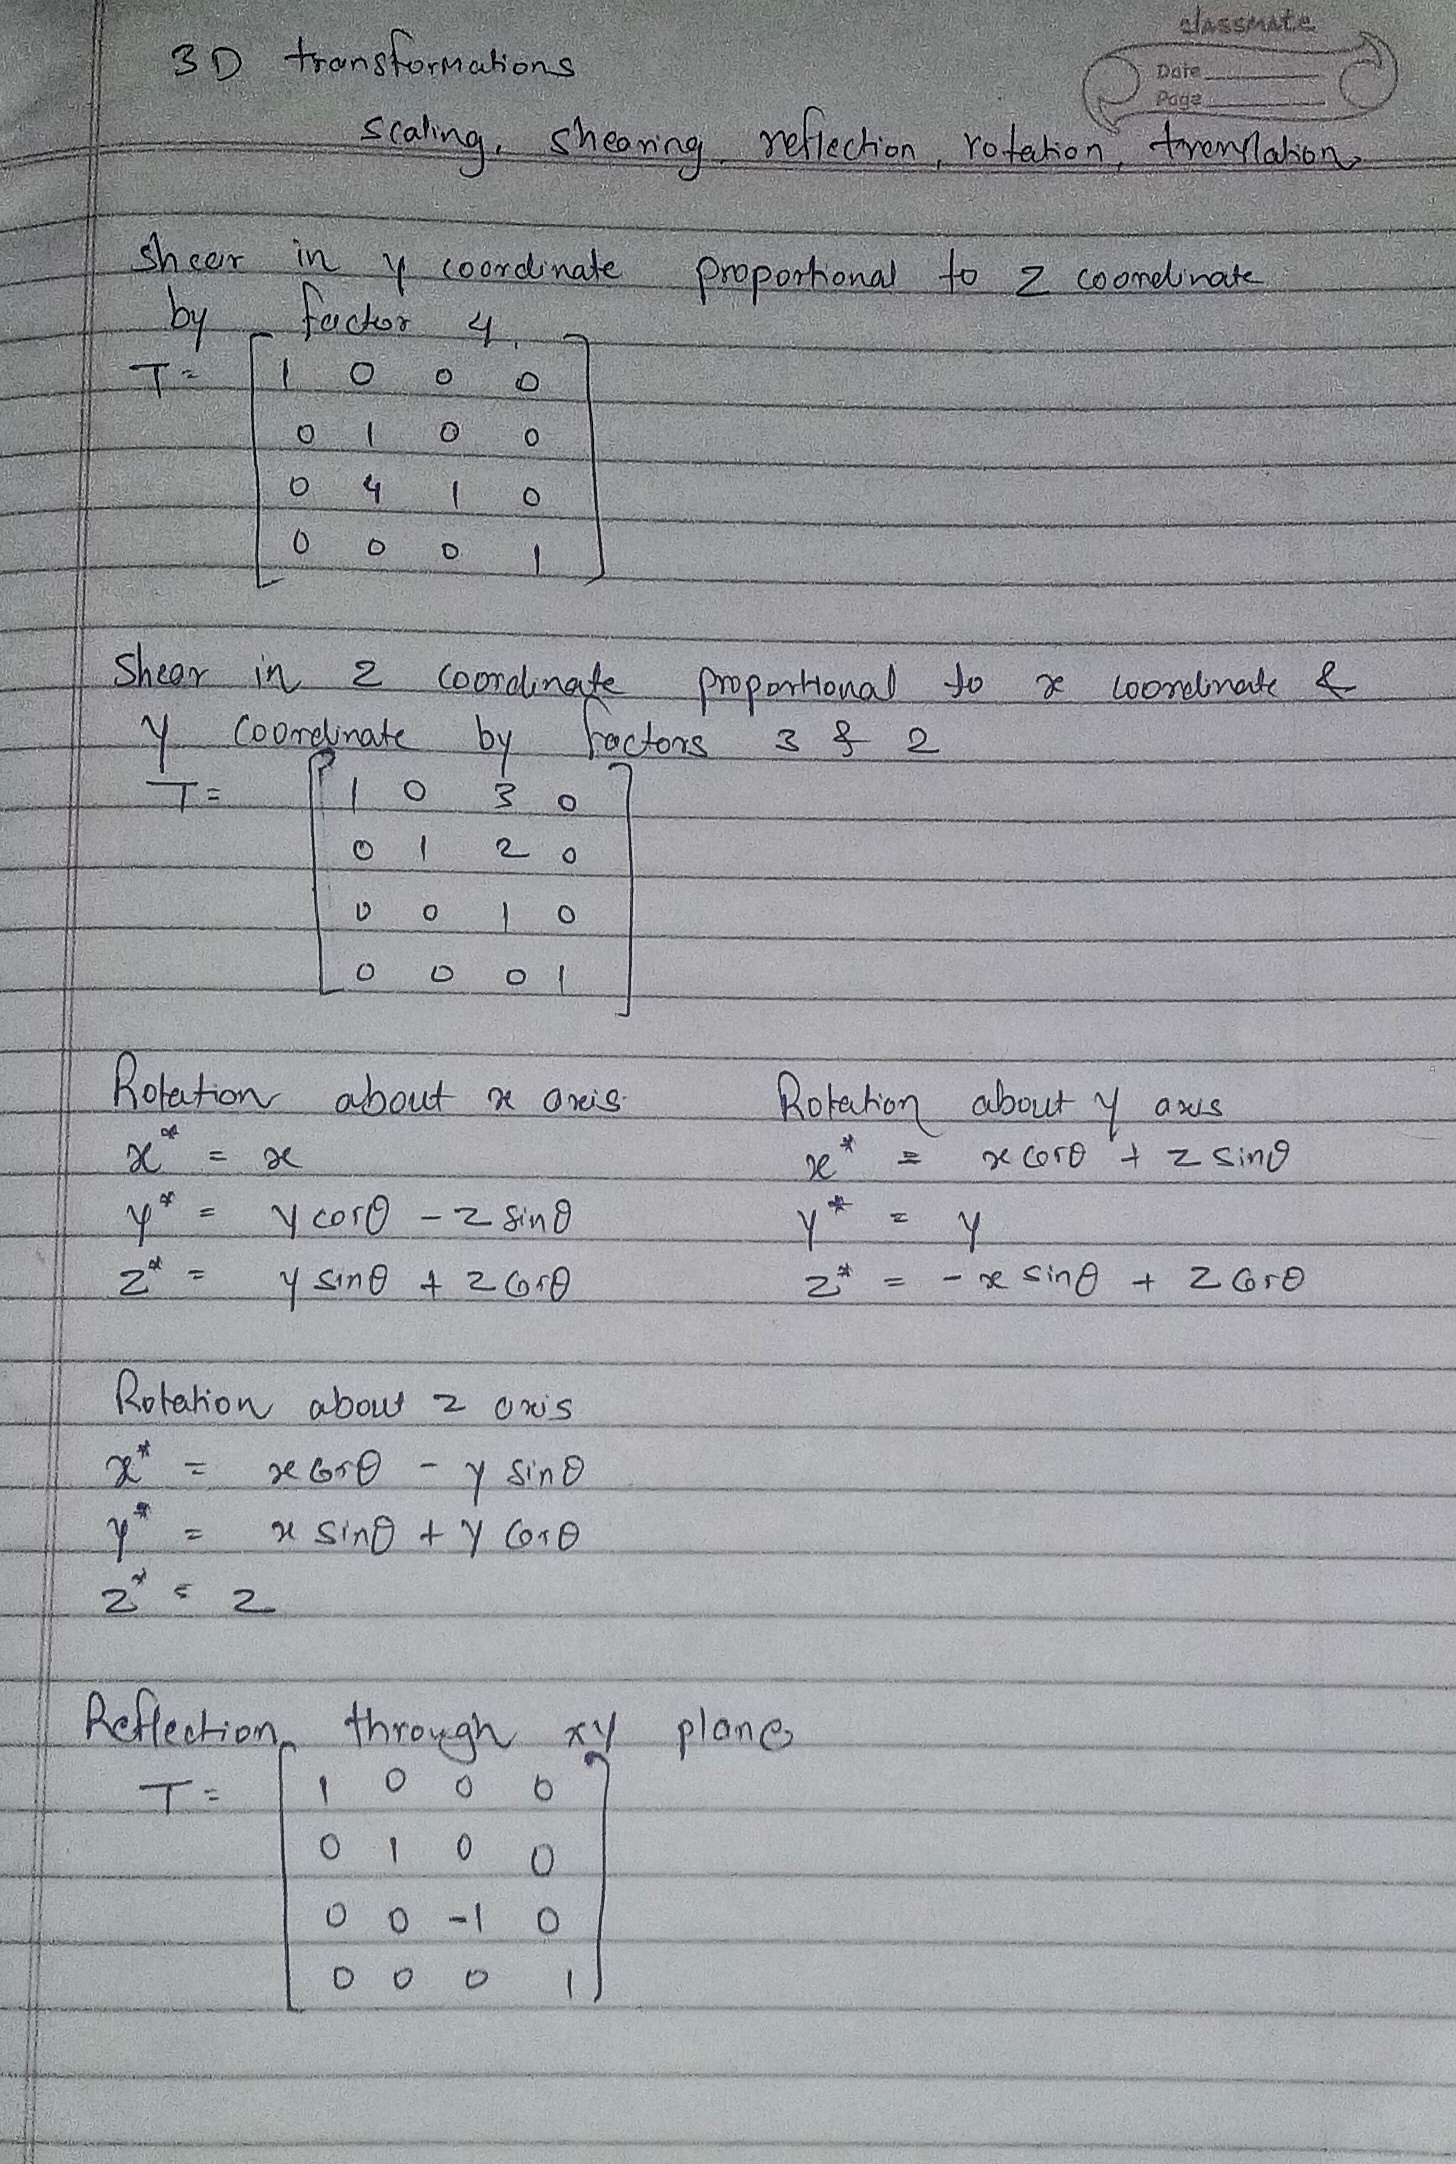 classmate
Date
Page
3D transformations
scaling, shearing, reflection, rotation, translation
shear in y coordinate proportional to z coordinate
by factor 4
T = [ 1 0 0 0
0 1 0 0
0 4 1 0
0 0 0 1 ]
Shear in z coordinate proportional to x coordinate &
y coordinate by factors 3 & 2
T = [ 1 0 3 0
0 1 2 0
0 0 1 0
0 0 0 1 ]
Rotation about x axis
x* = x
y* = y cosθ - z sinθ
z* = y sinθ + z cosθ
Rotation about y axis
x* = x cosθ + z sinθ
y* = y
z* = - x sinθ + z cosθ
Rotation about z axis
x* = x cosθ - y sinθ
y* = x sinθ + y cosθ
z* = z
Reflection through xy plane
T = [ 1 0 0 0
0 1 0 0
0 0 -1 0
0 0 0 1 ]